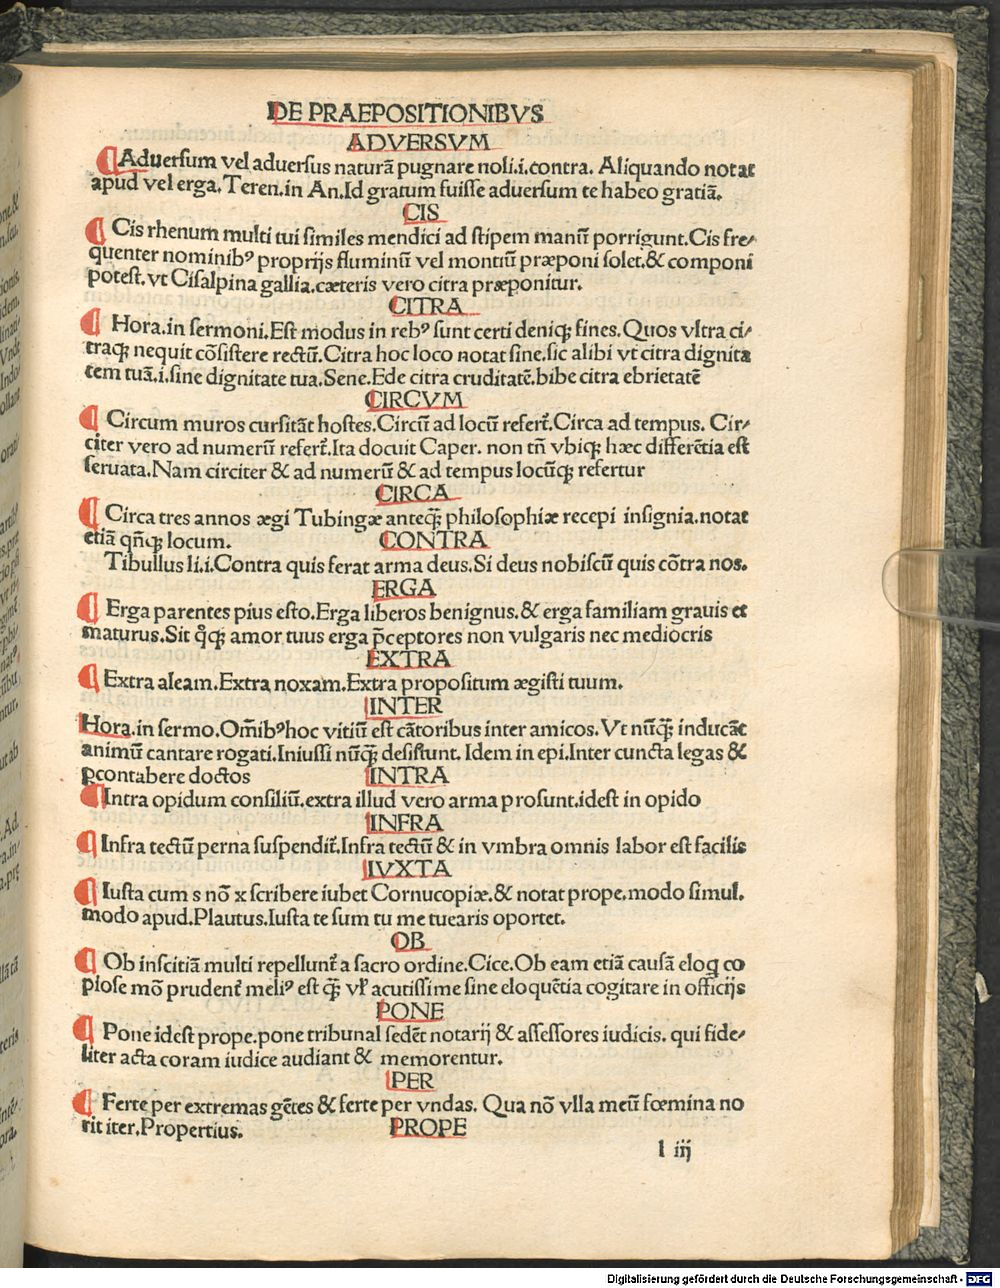 DE PRAEPOSITIONIBVS
ADVERSVM
Aduersum vel aduersus naturā pugnare noli.i.contra. Aliquando notat
apud vel erga. Teren.in An.Id gratum fuisse aduersum te habeo gratiā.
CIS
Cis rhenum multi tui similes mendici ad stipem manū porrigunt.Cis fre/
quenter nominibꝰ proprijs fluminū vel montiū præponi solet.& componi
potest.vt Cisalpina gallia.cæteris vero citra præponitur.
CITRA
Hora.in sermoni.Est modus in rebꝰ sunt certi deniqꝫ fines.Quos vltra ci/
traqꝫ nequit cōsistere rectū.Citra hoc loco notat sine.sic alibi vt citra dignita
tem tuā.i.sine dignitate tua.Sene.Ede citra cruditatē.bibe citra ebrietatē
CIRCVM
Circum muros cursitāt hostes.Circū ad locū refert̃.Circa ad tempus. Cir/
citer vero ad numerū refert̃.Ita docuit Caper. non tñ vbiqꝫ hæc differētia est
seruata.Nam circiter & ad numerū & ad tempus locūqꝫ refertur
CIRCA
Circa tres annos ægi Tubingæ anteqꝫ̃ philosophiæ recepi insignia.notat
etiā qñqꝫ locum.
CONTRA
Tibullus li.i.Contra quis ferat arma deus.Si deus nobiscū quis cōtra nos.
ERGA
Erga parentes pius esto.Erga liberos benignus.& erga familiam grauis et
maturus.Sit qͦqꝫ amor tuus erga p̄ceptores non vulgaris nec mediocris
EXTRA
Extra aleam.Extra noxam.Extra propositum ægisti tuum.
INTER
Hora.in sermo.Om̄ibꝰ hoc vitiū est cātoribus inter amicos. Vt nūqꝫ̃ inducāt
animū cantare rogati.Iniussi nūqꝫ̃ desistunt. Idem in epi.Inter cuncta legas &
ꝑcontabere doctos
INTRA
Intra opidum consiliū.extra illud vero arma prosunt.idest in opido
INFRA
Infra tectū perna suspendit̃.Infra tectū & in vmbra omnis labor est facilis
IVXTA
Iusta cum s nō x scribere iubet Cornucopiæ.& notat prope.modo simul.
modo apud.Plautus.Iusta te sum tu me tuearis oportet.
OB
Ob inscitiā multi repellunt̃ a sacro ordine.Cice.Ob eam etiā causā eloq̄ co
piose mō prudent̃ meliꝰ est qꝫ̃ vl̓ acutissime sine eloquētia cogitare in officijs
PONE
Pone idest prope.pone tribunal sedēt notarij & assessores iudicis. qui fide/
liter acta coram iudice audiant & memorentur.
PER
Ferte per extremas gētes & ferte per vndas. Qua nō vlla meū fœmina no
rit iter.Propertius.
PROPE
l iij
Digitalisierung gefördert durch die Deutsche Forschungsgemeinschaft - DFG